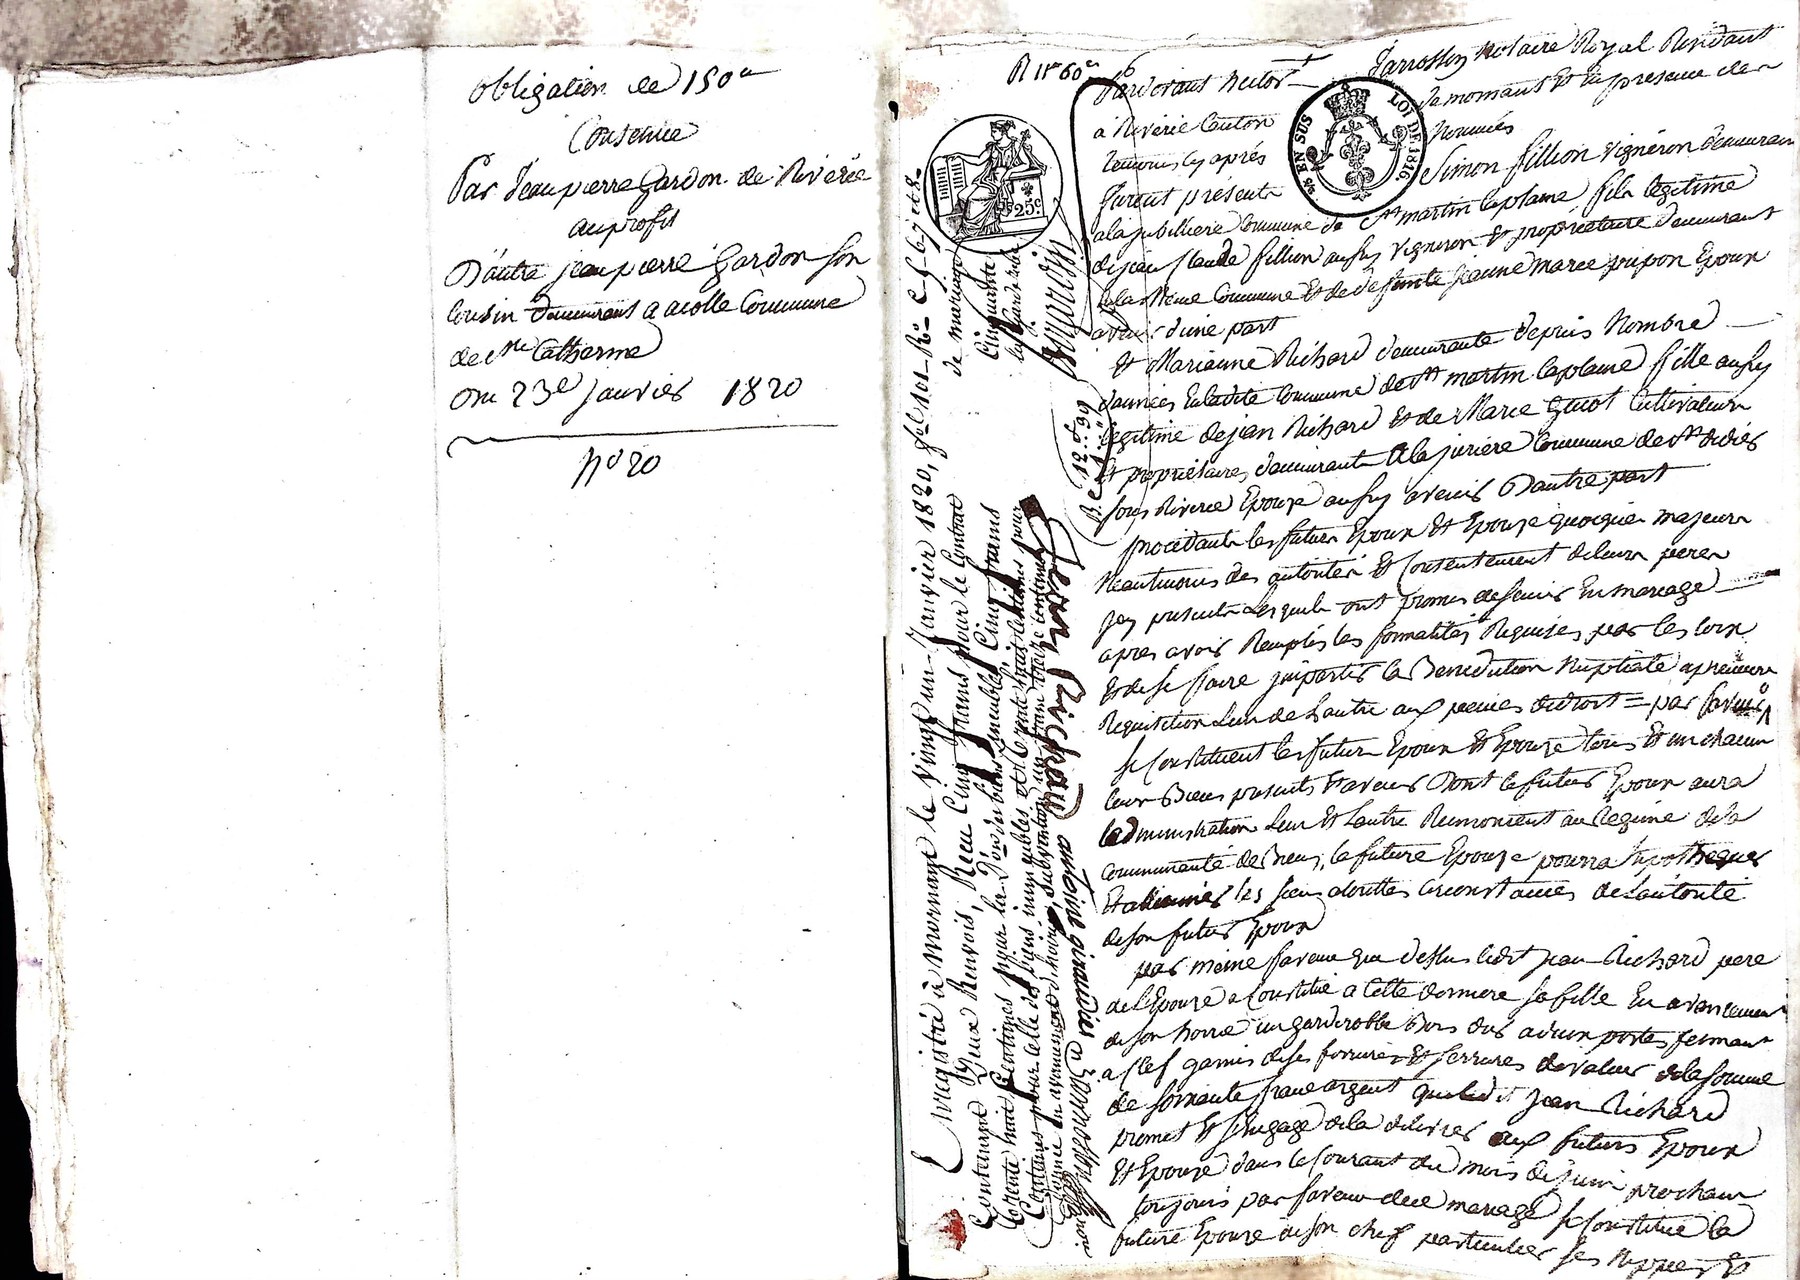 obligation de 150
Consentie
Par Jean pierre Gardon de Riverie
au profit
D'autre jean pierre Gardon son
Cousin demeurant a Commune
de Ste Catherine
Du 23e janvier 1820
No 20
R 1er 60c
6
Pardevant hector Jarrosson Notaire Royal Résidant
à Riverie Canton de mornant Et En présence des
temoins cy après nommés
furent présents Simon fillion vigneron demeurant
a la jubilliere Commune de St martin laplaine fils légitime
de jean Claude fillion aussy vigneron et propriétaire demeurant
a la Meme Commune Et de defunte jeanne marie poupon Epoux
avenir d'une part
Et Marianne Richard demeurante depuis Nombre
d'années En ladite Commune de St martin laplaine fille aussy
légitime de jean Richard et de Marie Guiot Cultivateurs
Et propriétaires demeurants a la juriere Commune de St didier
sous Riverie Epouse aussy avenir D'autre part
procédants les futurs Epoux Et Epouse quoique majeurs
Neantmoins des autorités Et Consentement de leurs peres
jcy présents Lesquels ont promis de s'unir En mariage
après avoir Remplis les formalités Requises par les loix
Et de se faire jmpartir la Bénédiction Nuptiale a premiere
Requisition L'un de L'autre aux peines de droit = par faveur
se Constituent les futurs Epoux Et Epouse tous Et un chacun
leurs Biens présents Et avenir Dont le futur Epoux aura
l'administration L'un Et L'autre Renoncent au Régime de la
Communauté de Biens, la future Epouse pourra hypothequer
Et aliéner les siens a toutes circonstances de L'autorité
de son futur Epoux
par même faveur que dessus ledit jean Richard pere
de L'Epouse a Constitué a Cette derniere sa fille En avancement
de son hoirie un garderobbe Bois dur a deux portes fermant
a Clef garnis de ses ferrures Et serrures de valeur de la somme
de soixante francs argent que ledit jean Richard
promet Et s'Engage de la délivrer aux futurs Epoux
Et Epouse dans le Courant du mois de juin prochain
toujours par faveur dece mariage se Constitue la
future Epouse de son chef particulier ses Nippes Et
25c
EN SUS
LOI DE 1816
Enregistré à mornant le vingt un Janvier 1820, fol 101 Ro C 5, 6, 7 et 8.
Contenant deux Renvois, Reçu Cinq francs pour le Contrat de mariage
trente huit Centimes pour la Don des biens immeubles Cinq francs Cinquante
Centimes pour celle des biens immeubles
jean Richard
antoine giraudier
Jarrosson